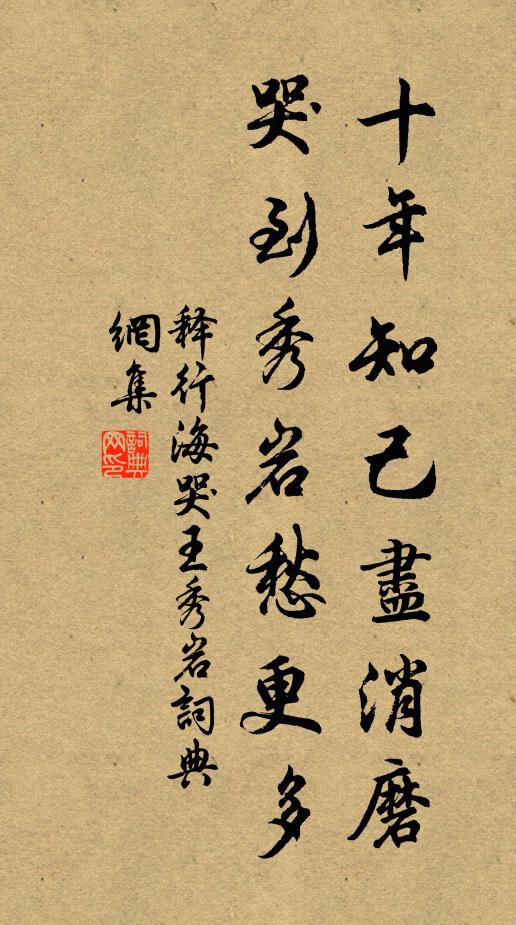 十年知己盡消磨
哭到秀岩愁更多
释行海哭王秀岩詞典
網集
詞典網印